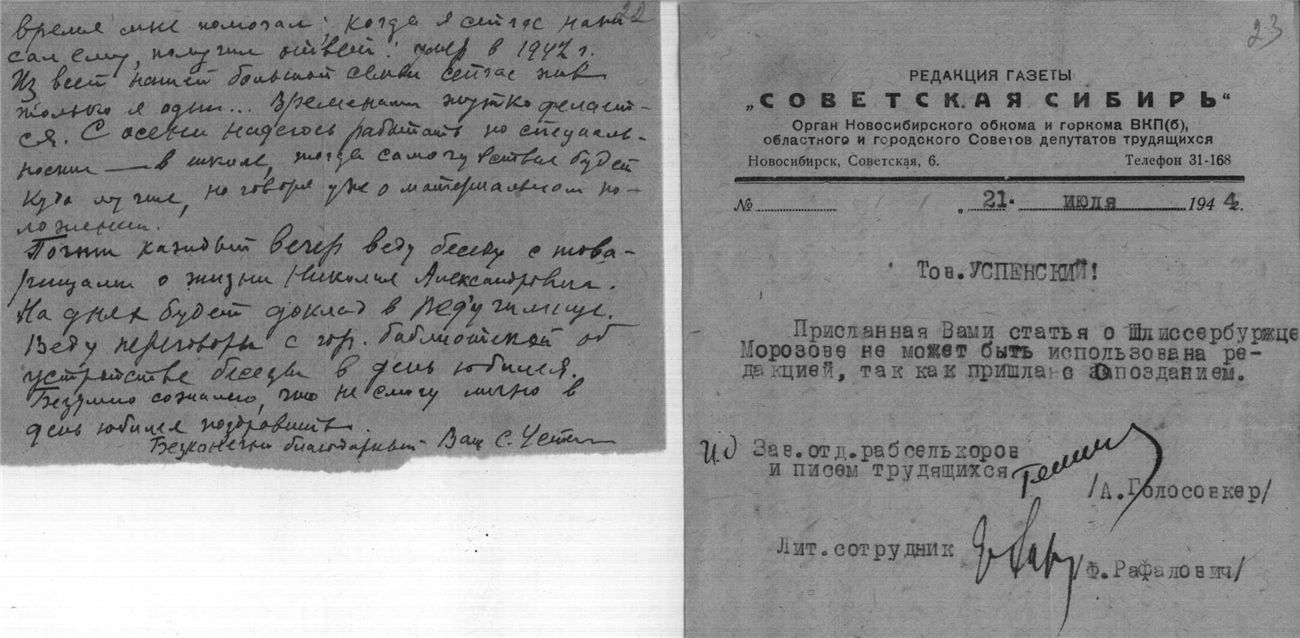 22
время мне помогал; когда я сейчас напи
сал ему, получил ответ: умер в 1942 г.
Из всей нашей большой семьи сейчас жив
только я один... Временами жутко делает-
ся. С осени надеюсь работать по специаль-
ности — в школе, тогда самочувствие будет
куда лучше, не говоря уже о материальном по-
ложении.
Почти каждый вечер веду беседу с това-
рищами о жизни Николая Александровича.
На днях будет доклад в Педучилище.
Веду переговоры с гор. библиотекой об
устройстве беседы в день юбилея.
Безумно сожалею, что не смогу лично в
день юбилея поздравить.
Безконечно благодарный Ваш С. Успен
23
РЕДАКЦИЯ ГАЗЕТЫ
„СОВЕТСКАЯ СИБИРЬ“
Орган Новосибирского обкома и горкома ВКП(б),
областного и городского Советов депутатов трудящихся
Новосибирск, Советская, 6. Телефон 31-168
№ 21. июля 1944г.
Тов. УСПЕНСКИЙ!
Присланная Вами статья о Шлиссербуржце
Морозове не может быть использована ре-
дакцией, так как пришла с опозданием.
И.О Зав. отд. рабселькоров
и писем трудящихся
/А. Голосовкер/
Лит. сотрудник
/Ф. Рафалович/